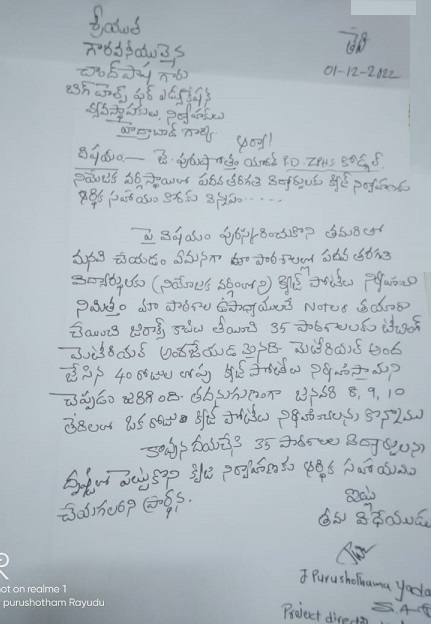 శ్రీయుత
గౌరవనీయులైన
చాంద్ పాష గారు
బిగ్ హెల్ప్ ఫర్ ఎడ్యుకేషన్
వ్యవస్థాపకులు, నిర్వాహకులు
హైద్రాబాద్ గార్కి
తేది
01-12-2022
ఆర్యా!
విషయం:— జె. పురుషోత్తం యాదవ్ P.D. ZPHS
నియోజక వర్గస్థాయిలో పదవ తరగతి విద్యార్థులకు క్విజ్ నిర్వహణకు
ఆర్థిక సహాయం కొరకు విన్నపం.....
పై విషయం పురస్కరించుకొని తమరితో
మనవి చేయడం ఏమనగా మా పాఠశాలల్లో పదవ తరగతి
విద్యార్థులకు (నియోజక వర్గంలోని) క్విజ్ పోటీలు నిర్వహించు
నిమిత్తం మా పాఠశాల ఉపాధ్యాయులచే Notes తయారు
చేయించి జిరాక్స్ కాపీలు తీయించి 35 పాఠశాలలకు టీచింగ్
మెటీరియల్ అందజేయడమైనది. మెటీరియల్ అంద
జేసిన 40 రోజుల లోపు క్విజ్ పోటీలు నిర్వహిస్తామని
చెప్పడం జరిగింది తదనుగుణంగా జనవరి 8, 9, 10
తేదిలలో ఒక రోజు క్విజ్ పోటీలు నిర్వహించదలుచుకొన్నాము
కావున దయచేసి 35 పాఠశాలల విద్యార్థులను
దృష్టిలో పెట్టుకొని క్విజ్ నిర్వాహణకు ఆర్థిక సహాయము
చేయగలరని ప్రార్థన.
ఇట్లు
తమ విధేయుడు
J Purushothama Yada
Project direct
ot on realme 1
purushotham Rayudu